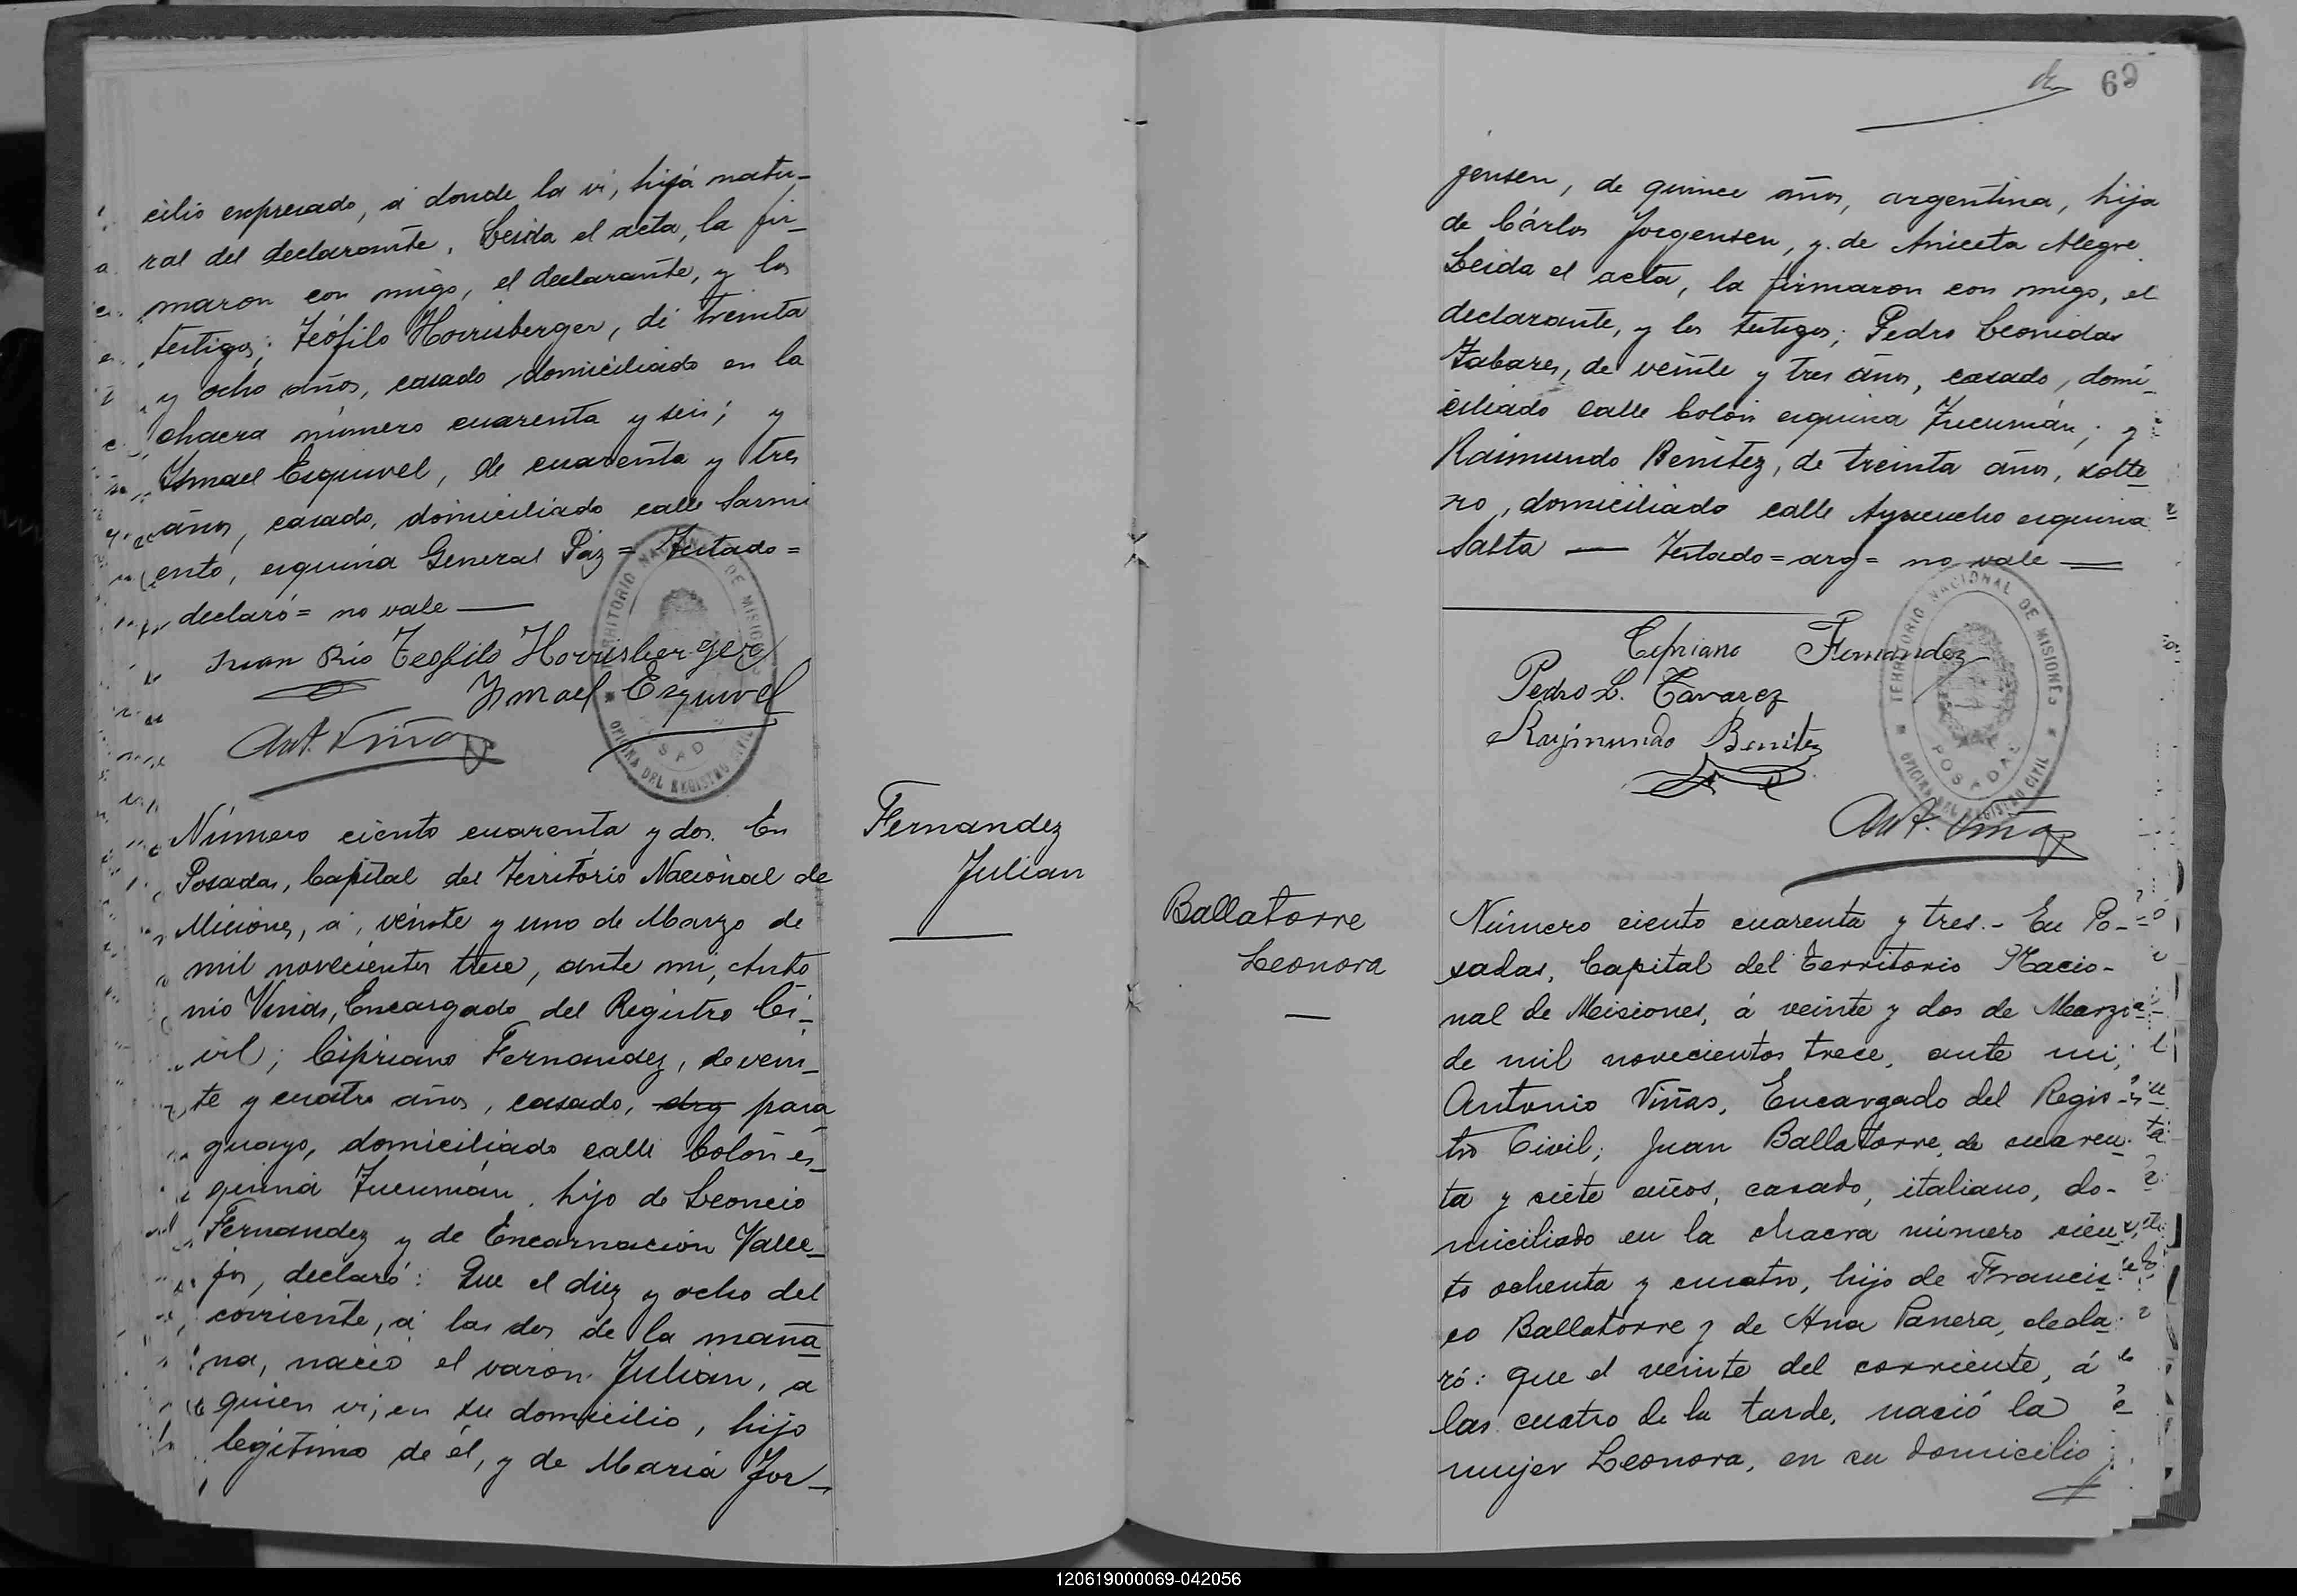 cilio expresado, á donde la ví, hija natu-
ral del declarante. Leida el acta, la fir-
maron con migo, el declarante, y los
testigos; Teófilo Horrisberger, de treinta
y ocho años, casado domiciliado en la
chacra número cuarenta y seis; y
Ismael Esquivel, de cuarenta y tres
años, casado, domiciliado calle Sarmi
ento, esquina General Paz = Testado =
declaró = no vale —
Juan Rio Teofilo Horrisberger
Ismael Esquivel
Ant. Viñas
TERRITORIO NACIONAL DE MISIONES
OFICINA DEL REGISTRO CIVIL
Número ciento cuarenta y dos. En
Posadas, Capital del Territorio Nacional de
Misiones, á, veinte y uno de Marzo de
mil novecientos trece, ante mi, Anto
nio Viñas, Encargado del Registro Ci-
vil; Cipriano Fernandez, de vein-
te y cuatro años, casado, arg para
guayo, domiciliado calle Colón es-
quina Tucumán, hijo de Leoncio
Fernandez y de Encarnación Valle-
jos, declaró: Que el diez y ocho del
corriente, á las dos de la maña
na, nació el varon Julian, a
quien vi, en su domicilio, hijo
legitimo de él, y de Maria Jor-
Fernandez
Julian
69
jensen, de quince años, argentina, hija
de Cárlos Jorgensen, y de Aniceta Alegre.
Leida el acta, la firmaron con migo, el
declarante, y los testigos; Pedro Leonidas
Tabares, de veinte y tres años, casado, domi-
ciliado calle Colón esquina Tucumán; y
Raimundo Benitez, de treinta años, solte
ro, domiciliado calle Ayacucho esquina
Salta — Testado = arg = no vale —
Cipriano Fernandez
Pedro L. Tavarez
Raymundo Benitez
Ant. Viñas
TERRITORIO NACIONAL DE MISIONES
POSADAS
OFICINA DEL REGISTRO CIVIL
Ballatorre
Leonora
Número ciento cuarenta y tres.- En Po-
sadas, Capital del Territorio Nacio-
nal de Misiones, á veinte y dos de Marzo
de mil novecientos trece, ante mi,
Antonio Viñas, Encargado del Regis-
tro Civil; Juan Ballatorre, de cuaren-
ta y siete años, casado, italiano, do-
miciliado en la chacra número cien-
to ochenta y cuatro, hijo de Francis-
co Ballatorre y de Ana Panera, decla-
ró: que el veinte del corriente, á
las cuatro de la tarde, nació la
mujer Leonora, en su domicilio
120619000069-042056